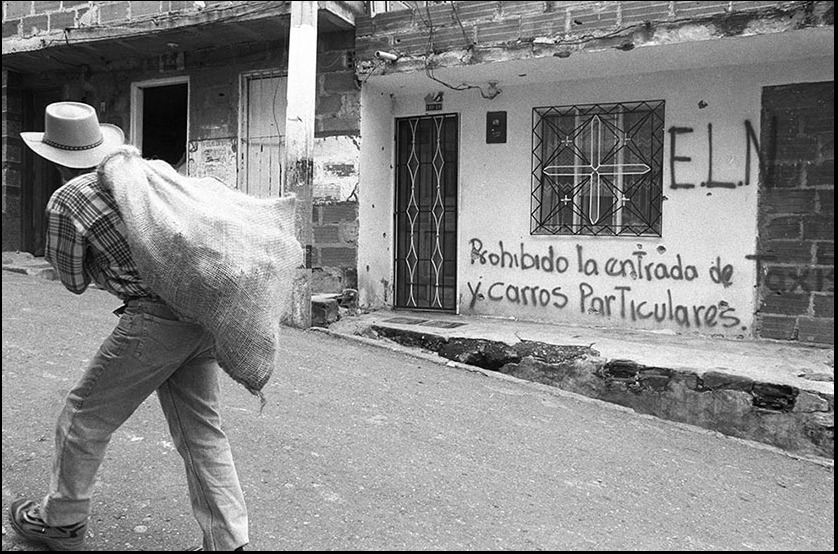 E.L.N
Prohibido la entrada de Taxis
y carros Particulares.